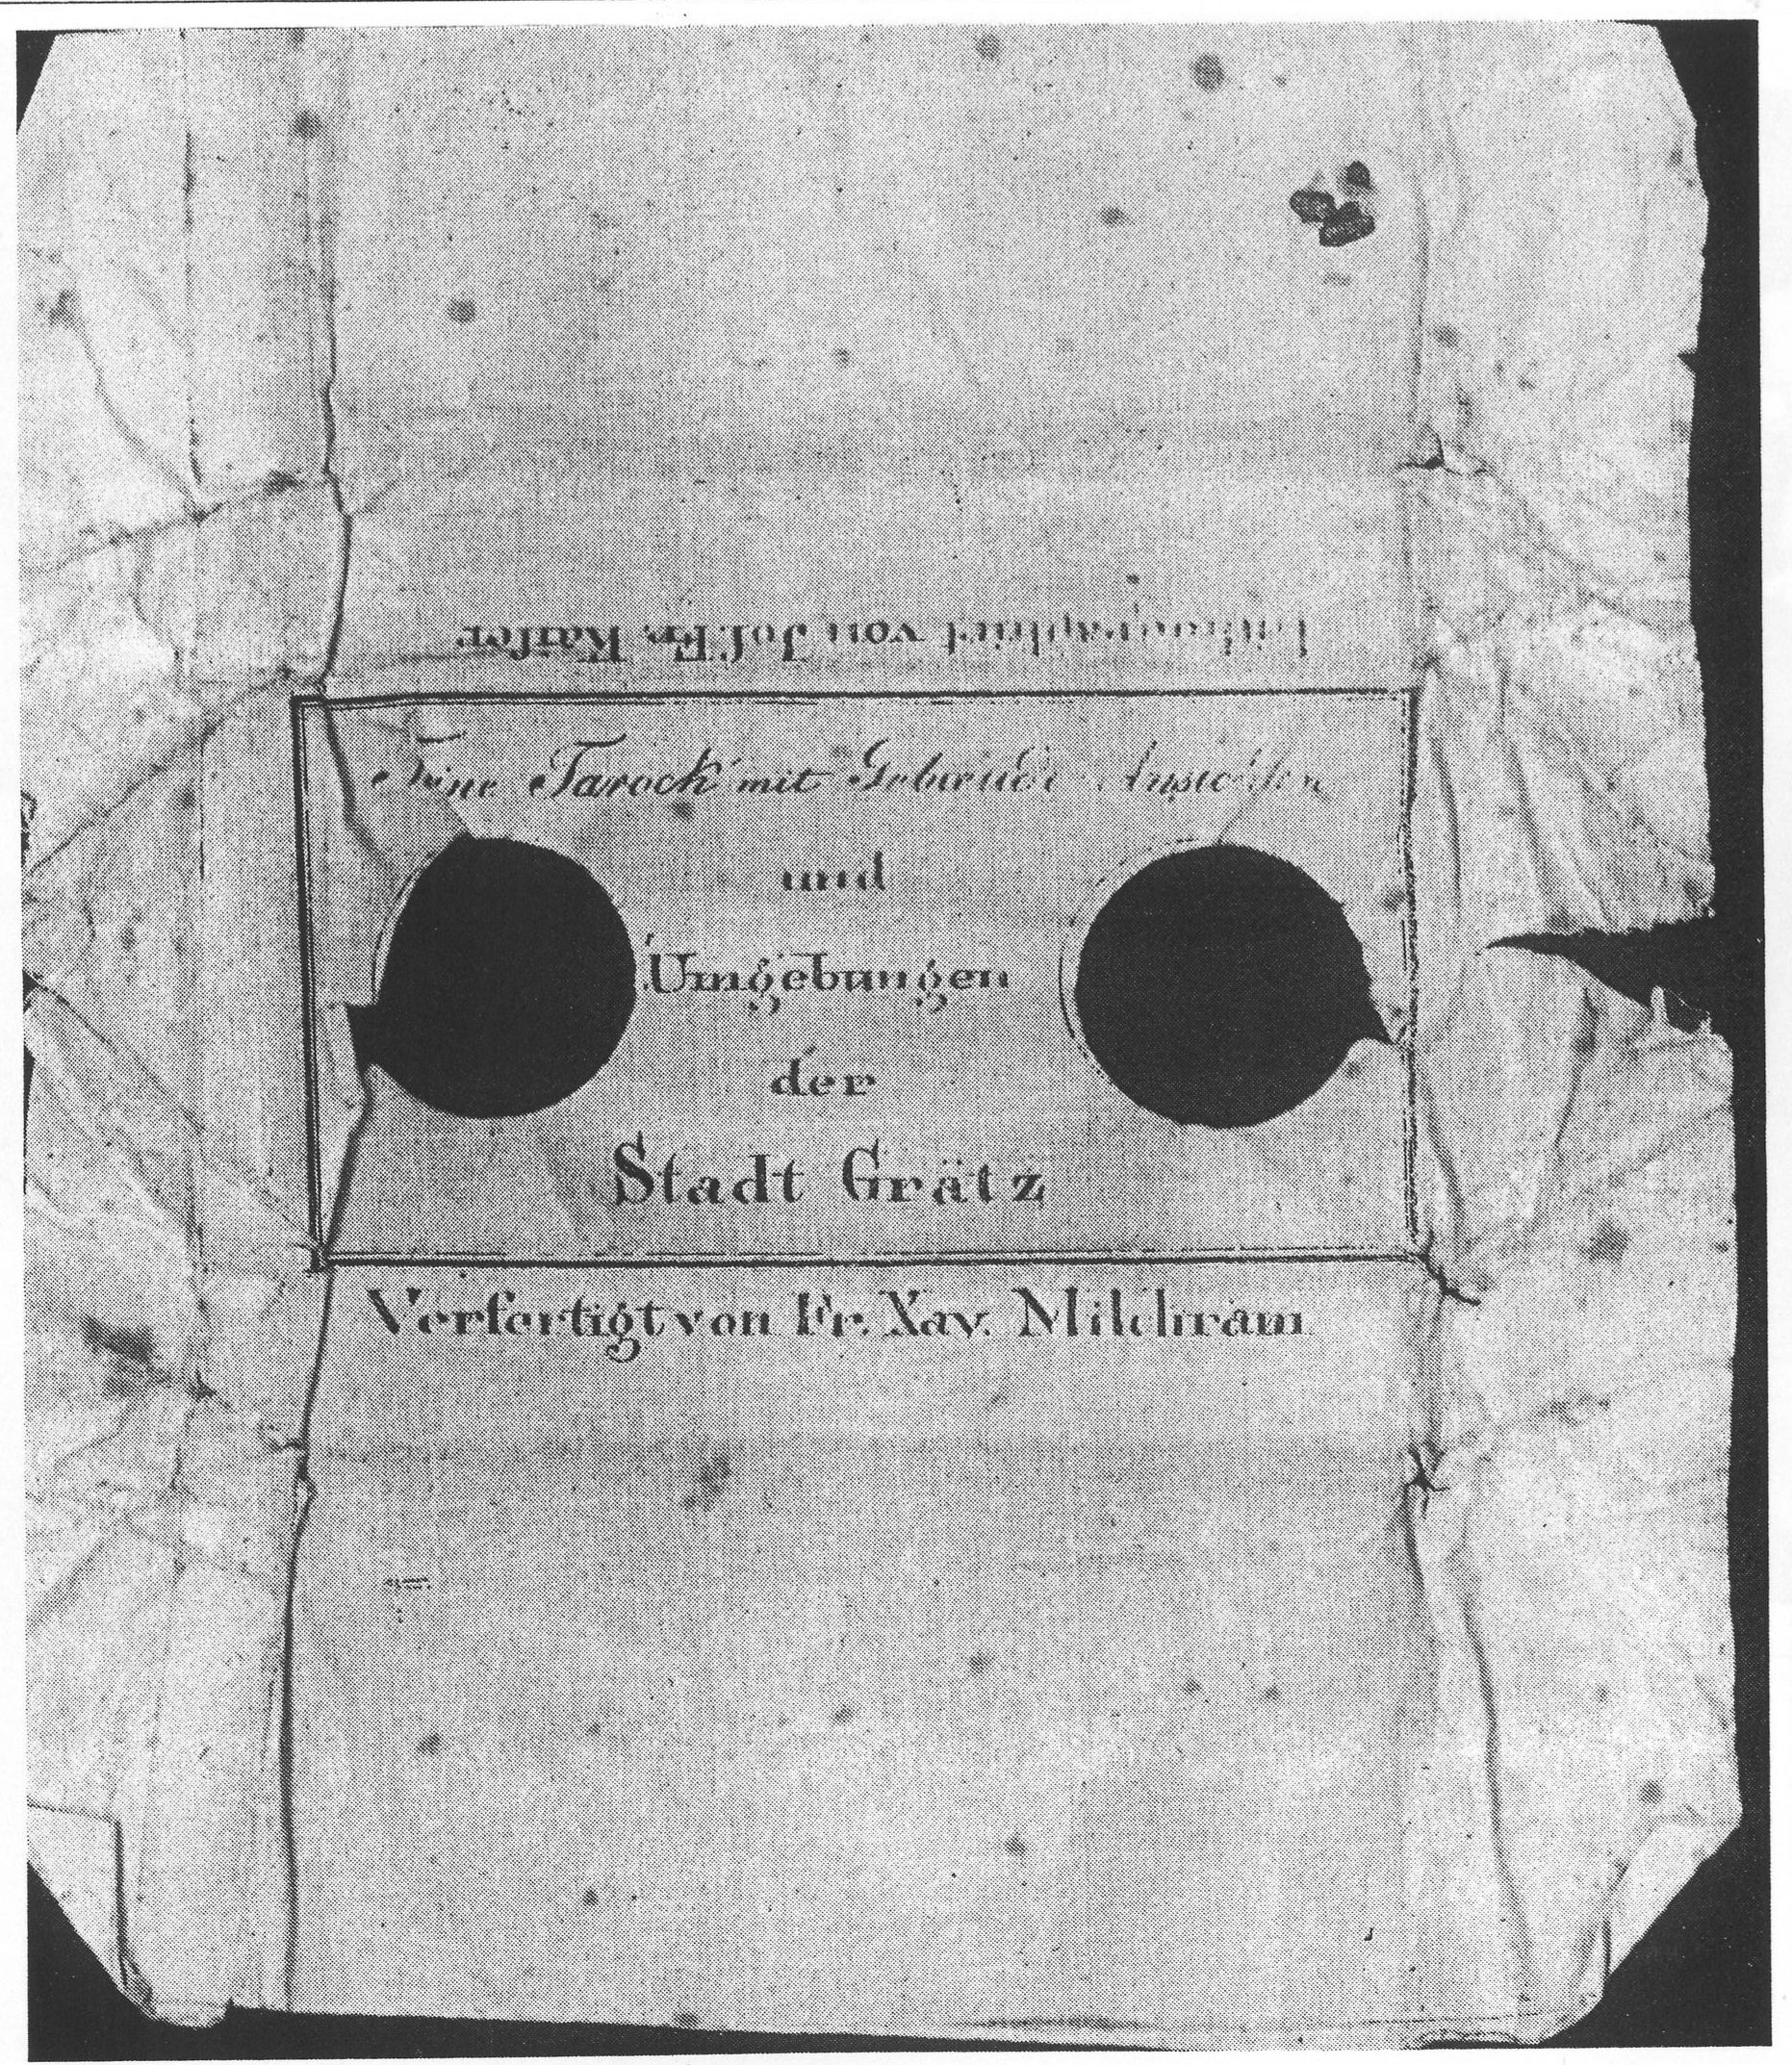 Lithographirt von Jos. Fr. Kaiser
Feine Tarock mit Gebæude Ansichten
und
Umgebungen
der
Stadt Grätz
Verfertigt von Fr. Xav. Milchram